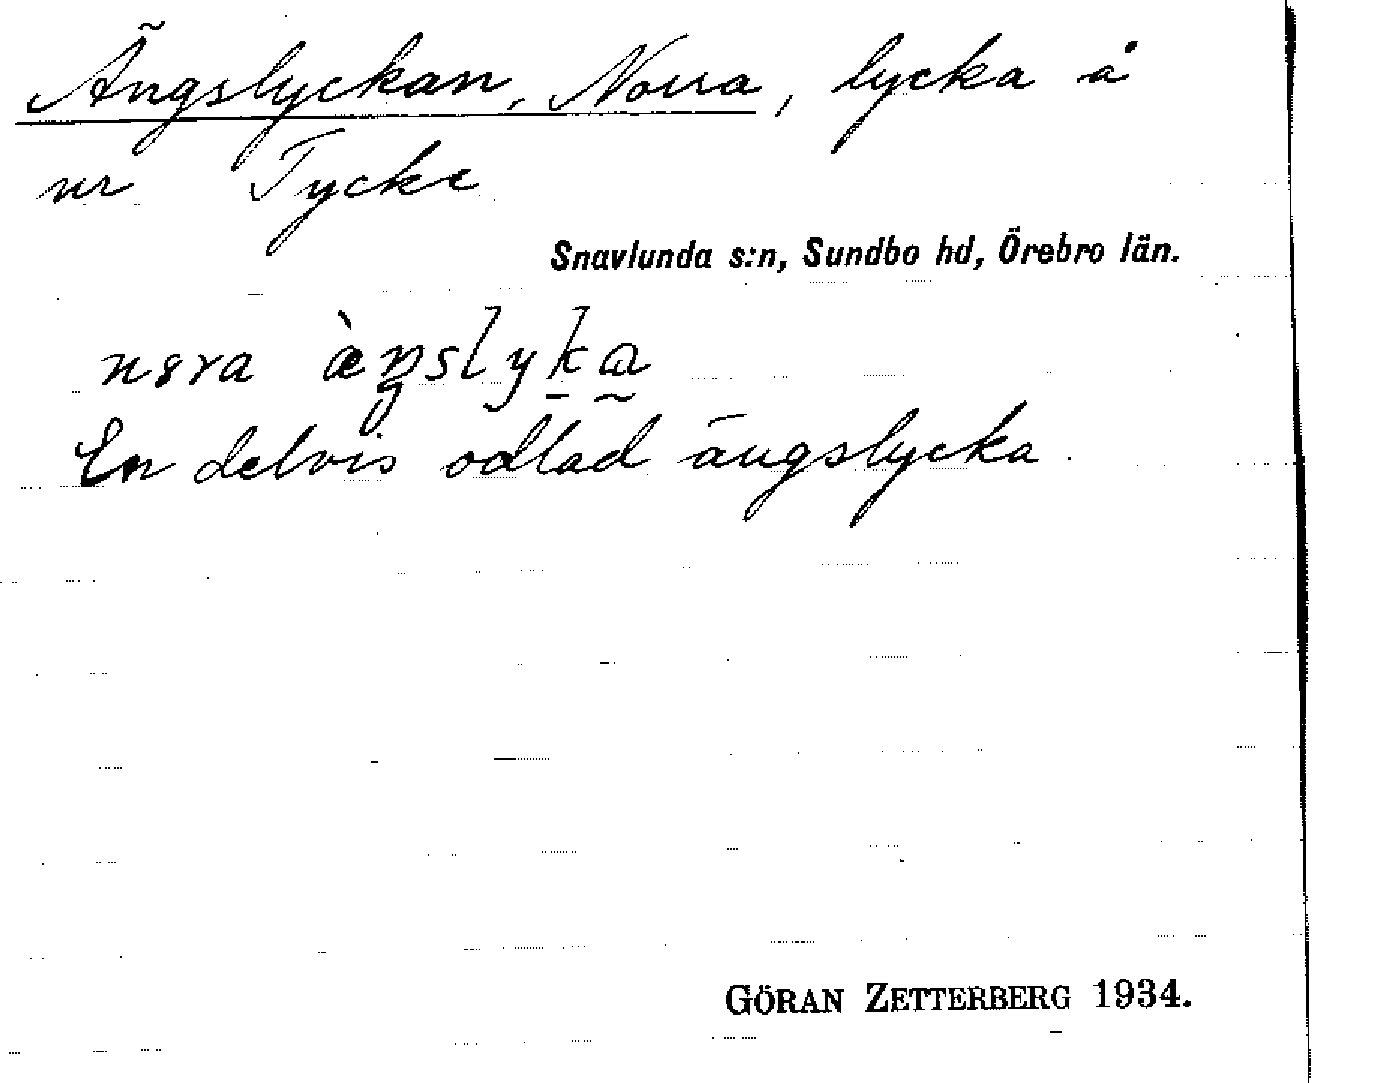 Ängslyckan, Norra, lycka å
nr Tycke
Snavlunda s:n, Sundbo hd, Örebro län.
En delvis odlad ängslycka.
GÖRAN ZETTERBERG 1934.